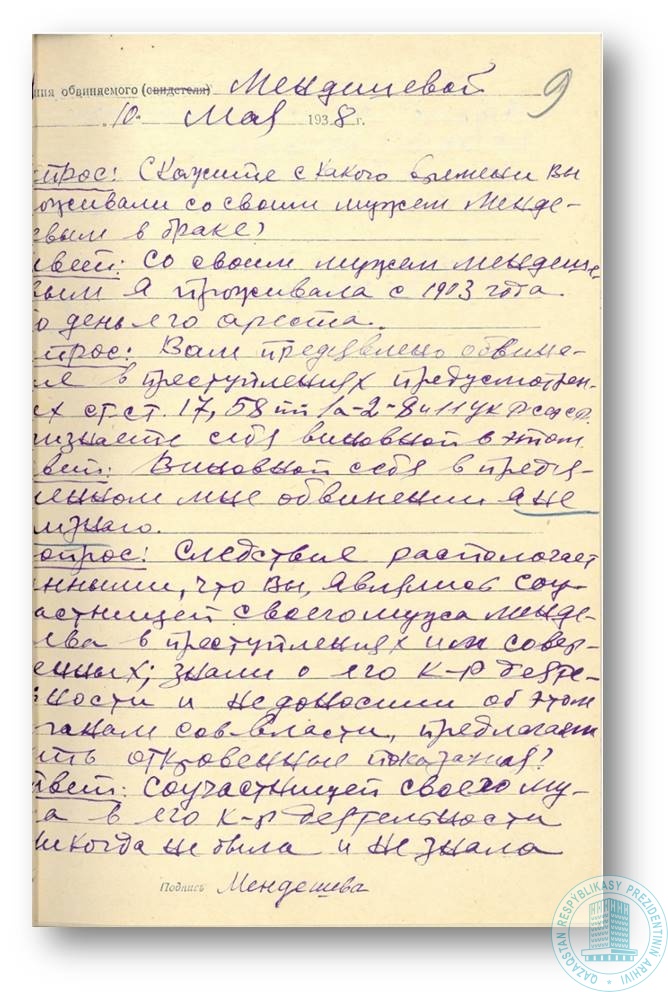 ния обвиняемого (свидетеля) Мендешевой
9
„10“ Мая 1938 г.
прос: Скажите с какого времени вы
оживали со своим мужем Менде-
евым в браке?
вет: Со своим мужем мендеше-
вым я проживала с 1903 года
о день его ареста.
прос: Вам предъявлено обвине-
ие в преступлениях предусмотрен-
ых ст.ст. 17, 58 пп 1а-2-8 и 11 ук рсфср.
изнаете себя виновной в этом
вет: Виновной себя в предъяв-
ленном мне обвинении я не
изнаю.
опрос: Следствие располагает
нными, что вы, являясь соу-
астницей своего мужа менде-
ева в преступлениях им совер-
енных; знали о его к-р деяте-
ности и не доносили об этом
ганам соввласти, предлагаем
ть откровенные показания?
твет: Соучастницей своего му-
а в его к-р деятельности
никогда не была и не знала
Подпись Мендешева
QAZAQSTAN RESPÝBLIKASY PREZIDENTINIŃ ARHIVI